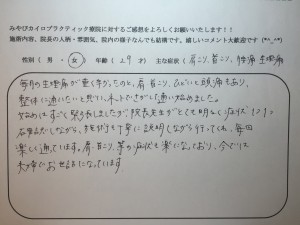 みやびカイロプラクティック療院に対するご感想をよろしくお願いいたします!!
施術内容、院長の人柄・雰囲気、院内の様子なんでも結構です。嬉しいコメント大歓迎です (*^_^*)
性別 ( 男 ・ 女 ) 年齢 ( 29 才) 主な症状 ( 肩こり、首こり、腰痛 生理痛
毎月の生理痛が重く辛かったのと、肩首こり、ひどいと頭痛もあり、
整体に通いたいと思い、ネットでさがして通い始めました。
始めはすごく緊張しましたが院長先生がとても明るく症状1つ1つ
を説明しながら、施術も丁寧に説明しながら行ってくれ、毎回
楽しく通っています。肩、首こり、等の症状も楽になっており、今では
夫婦でお世話になっています